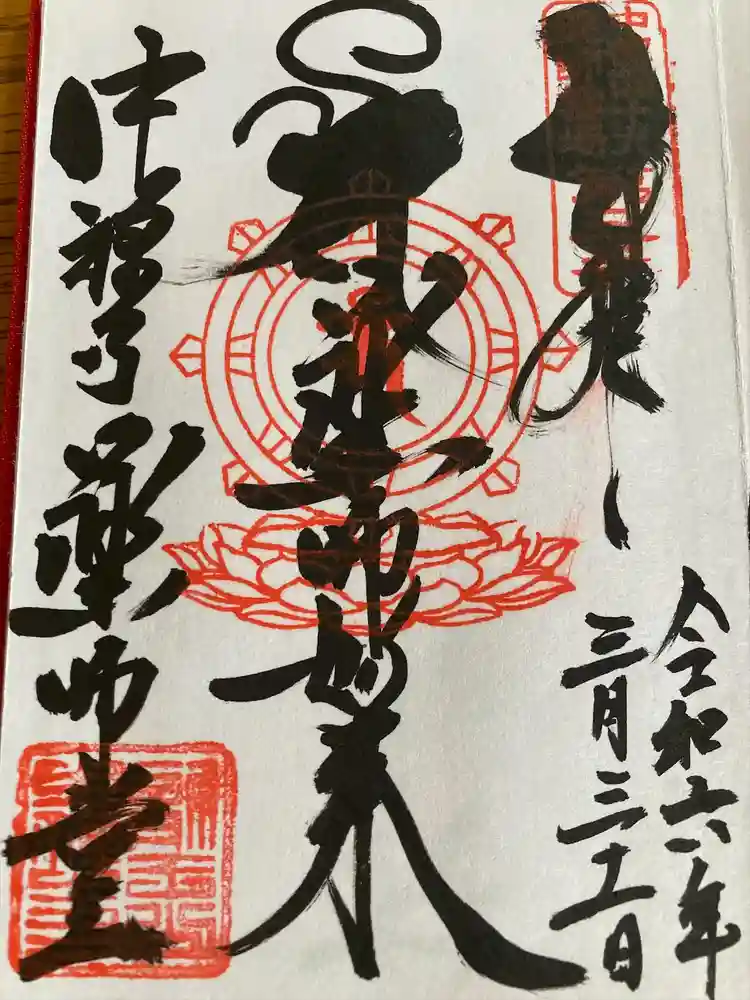 奉拝
令和六年
三月三十一日
薬師如来
中禅寺薬師堂